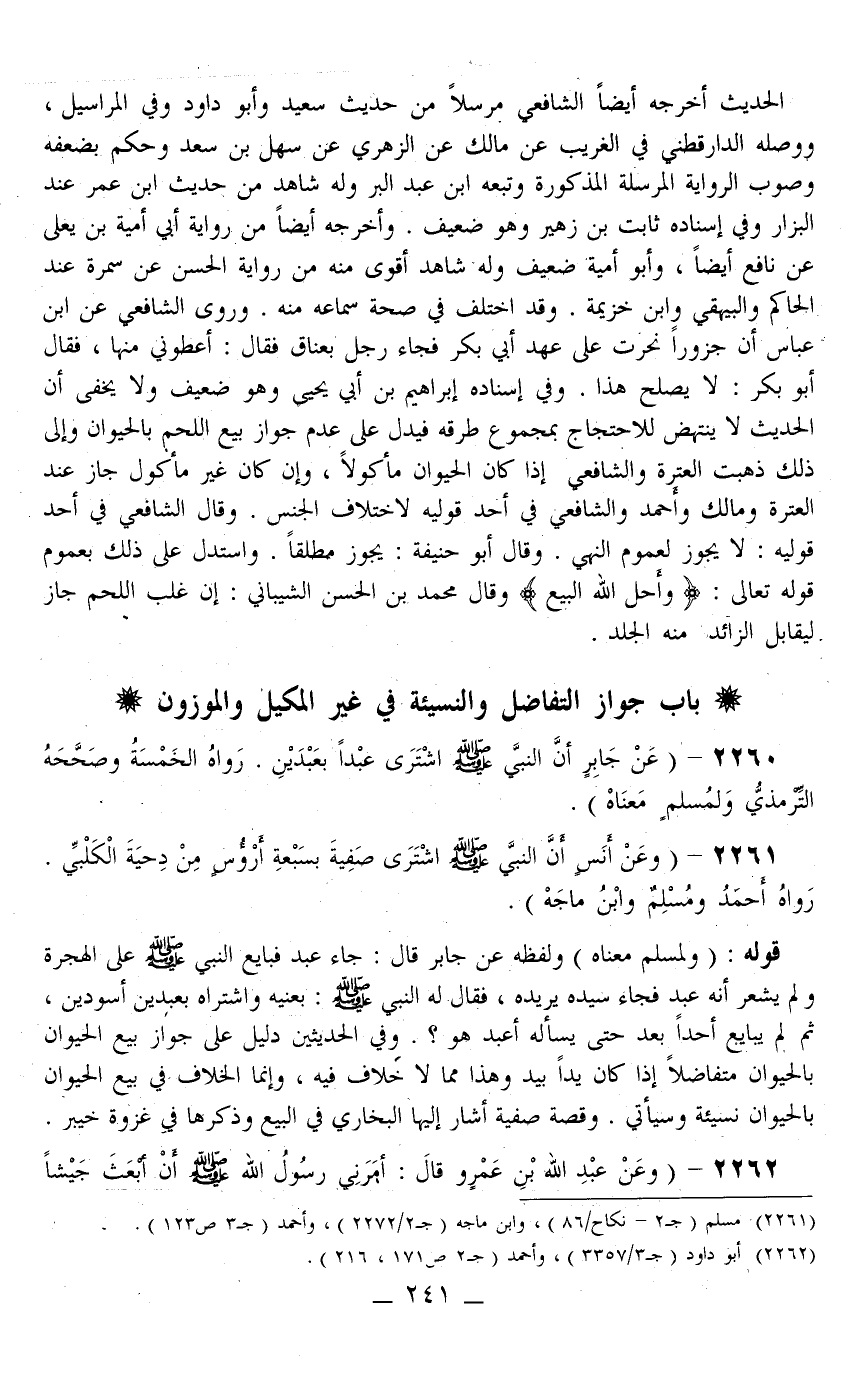 الحديث أخرجه أيضاً الشافعي مرسلاً من حديث سعيد وأبو داود وفي المراسيل ،
ووصله الدارقطني في الغريب عن مالك عن الزهري عن سهل بن سعد وحكم بضعفه
وصوب الرواية المرسلة المذكورة وتبعه ابن عبد البر وله شاهد من حديث ابن عمر عند
البزار وفي إسناده ثابت بن زهير وهو ضعيف . وأخرجه أيضاً من رواية أبي أمية بن يعلى
عن نافع أيضاً ، وأبو أمية ضعيف وله شاهد أقوى منه من رواية الحسن عن سمرة عند
الحاكم والبيهقي وابن خزيمة . وقد اختلف في صحة سماعه منه . وروى الشافعي عن ابن
عباس أن جزوراً نحرت على عهد أبي بكر فجاء رجل بعناق فقال : أعطوني منها ، فقال
أبو بكر : لا يصلح هذا . وفي إسناده إبراهيم بن أبي يحيى وهو ضعيف ولا يخفى أن
الحديث لا ينتهض للاحتجاج بمجموع طرقه فيدل على عدم جواز بيع اللحم بالحيوان وإلى
ذلك ذهبت العترة والشافعي إذا كان الحيوان مأكولاً ، وإن كان غير مأكول جاز عند
العترة ومالك وأحمد والشافعي في أحد قوليه لاختلاف الجنس . وقال الشافعي في أحد
قوليه : لا يجوز لعموم النهي . وقال أبو حنيفة : يجوز مطلقاً . واستدل على ذلك بعموم
قوله تعالى : ﴿ وأحل الله البيع ﴾ وقال محمد بن الحسن الشيباني : إن غلب اللحم جاز
ليقابل الزائد منه الجلد .
✹ باب جواز التفاضل والنسيئة في غير المكيل والموزون ✹
٢٢٦٠ – ( عَنْ جَابِرٍ أنَّ النبيَّ ﷺ اشْتَرَى عبْداً بعَبْدَيْنِ . رَواهُ الخَمْسَةُ وصَحَّحَهُ
التِّرمذيُّ وَلمُسلمٍ مَعنَاهُ ) .
٢٢٦١ – ( وعَنْ أنَسٍ أَنَّ النبيَّ ﷺ اشْتَرَى صَفِيةَ بسَبْعةِ أَرْؤُسٍ مِنْ دِحيَةَ الْكَلْبيِّ .
رَواهُ أَحمَدُ ومُسْلِمٌ وابْنُ ماجَهْ ) .
قوله : ( ولمسلم معناه ) ولفظه عن جابر قال : جاء عبد فبايع النبي ﷺ على الهجرة
ولم يشعر أنه عبد فجاء سيده يريده ، فقال له النبي ﷺ : بعنيه واشتراه بعبدين أسودين ،
ثم لم يبايع أحداً بعد حتى يسأله أعبد هو ؟ . وفي الحديثين دليل على جواز بيع الحيوان
بالحيوان متفاضلاً إذا كان يداً بيد وهذا مما لا خلاف فيه ، وإنما الخلاف في بيع الحيوان
بالحيوان نسيئة وسيأتي . وقصة صفية أشار إليها البخاري في البيع وذكرها في غزوة خيبر .
٢٢٦٢ – ( وعَنْ عبْدِ الله بْنِ عَمْرٍو قالَ : أمَرَنِي رسُولُ الله ﷺ أَنْ أبْعَثَ جَيْشاً
(٢٢٦١) مسلم ( جـ٢ – نكاح/٨٦ ) ، وابن ماجه ( جـ٢/٢٢٧٢ ) ، وأحمد ( جـ٣ ص١٢٣ ) .
(٢٢٦٢) أبو داود ( جـ٣/٣٣٥٧ ) ، وأحمد ( جـ٢ ص١٧١ ، ٢١٦ ) .
– ٢٤١ –